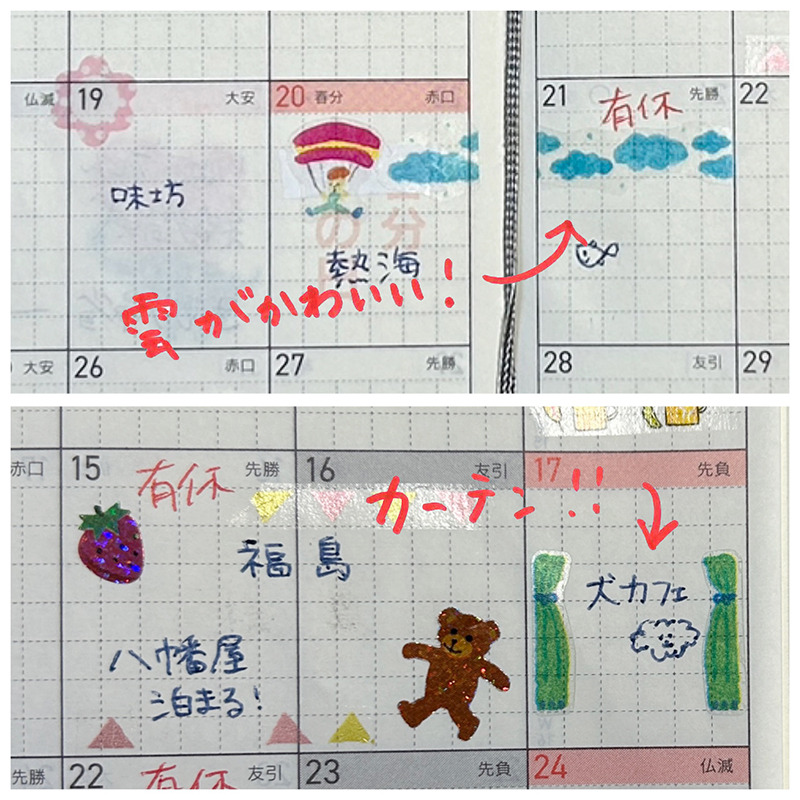 仏滅 19 大安 20 春分 赤口
味坊
熱海
雲がかわいい!
大安 26 赤口 27 先勝
21 有休 先勝 22
28 友引 29
赤口 15 有休 先勝 16 友引 17 先負
カーテン!!
福島
犬カフェ
八幡屋
泊まる!
先勝 22 有休 友引 23 先負 24 仏滅